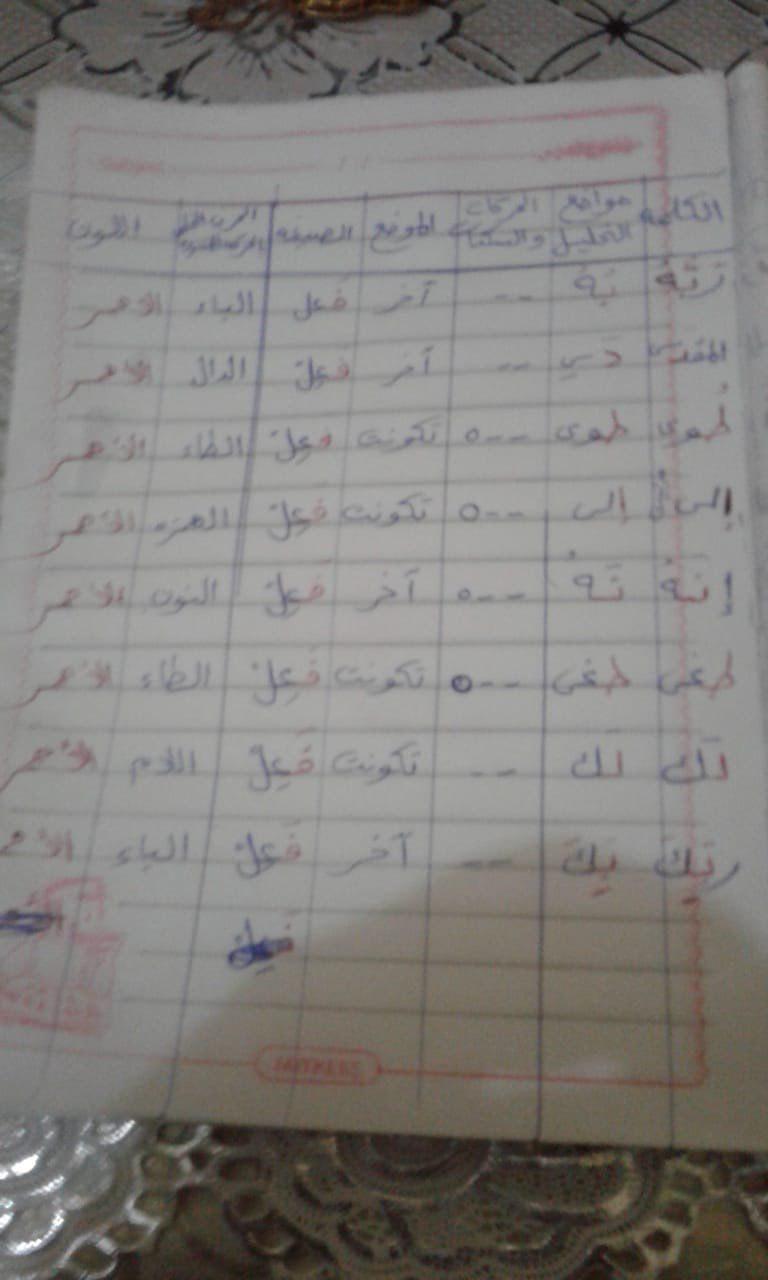 الكلمة مواضع التحليل الحركات والسكنات الموضع الصيغة اللون
رَبَّهُ بَهُ -- آخر فَعِل الباء الأحمر
المقدس دَسِ -- آخر فَعِلْ الدال الأحمر
طُوى طوى --ه تكونت فَعِلْ الطاء الأحمر
إلى إلى --ه تكونت فَعِلْ الهمزه الأحمر
إنهُ نَهُ --ه آخر فَعِلْ النون الأحمر
طغى طغى --ه تكونت فَعِلْ الطاء الأحمر
لَك لَك -- تكونت فَعِلْ اللام الأحمر
ربِكَ بِكَ -- آخر فَعِلْ الباء الأحمر